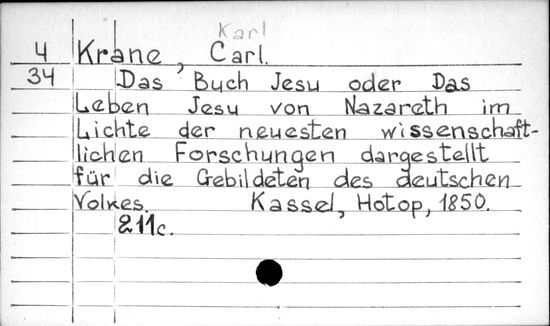 Karl
4 Krane, Carl.
34 Das Buch Jesu oder Das
Leben Jesu von Nazareth im
Lichte der neuesten wissenschaft-
lichen Forschungen dargestellt
für die Gebildeten des deutschen
Volkes. Kassel, Hotop, 1850.
211c.